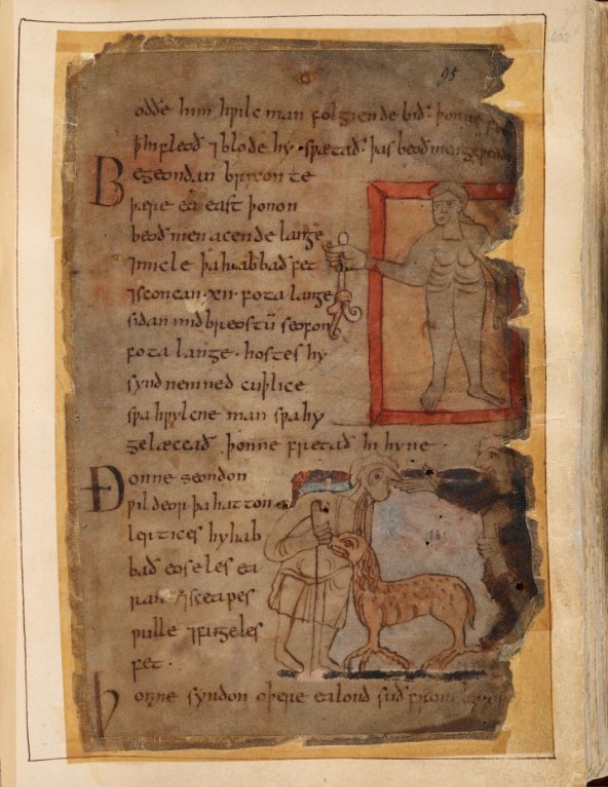 95
oððe him hƿilc man folgiende bið· þonne
hi fleoð ⁊ blode hy sƿætað· þas beoð men
Begeondan brixonte
þære ea east þonon
beoð men acende lange
⁊ micle þa habbað fet
⁊ sconcan·xii·fota lange
sidan mid breostū seofon
fota lange· hostes hy
synd nemned cuþlice
sƿa hƿylcne man sƿa hy
gelæccað þonne fretað hi hyne·
Ðonne seondon
ƿildeor þa hatton
lertices hy hab
bað eoseles ea
ran ⁊ sceapes
ƿulle ⁊ fugeles
fet·
þonne syndon oþere ealond suð from